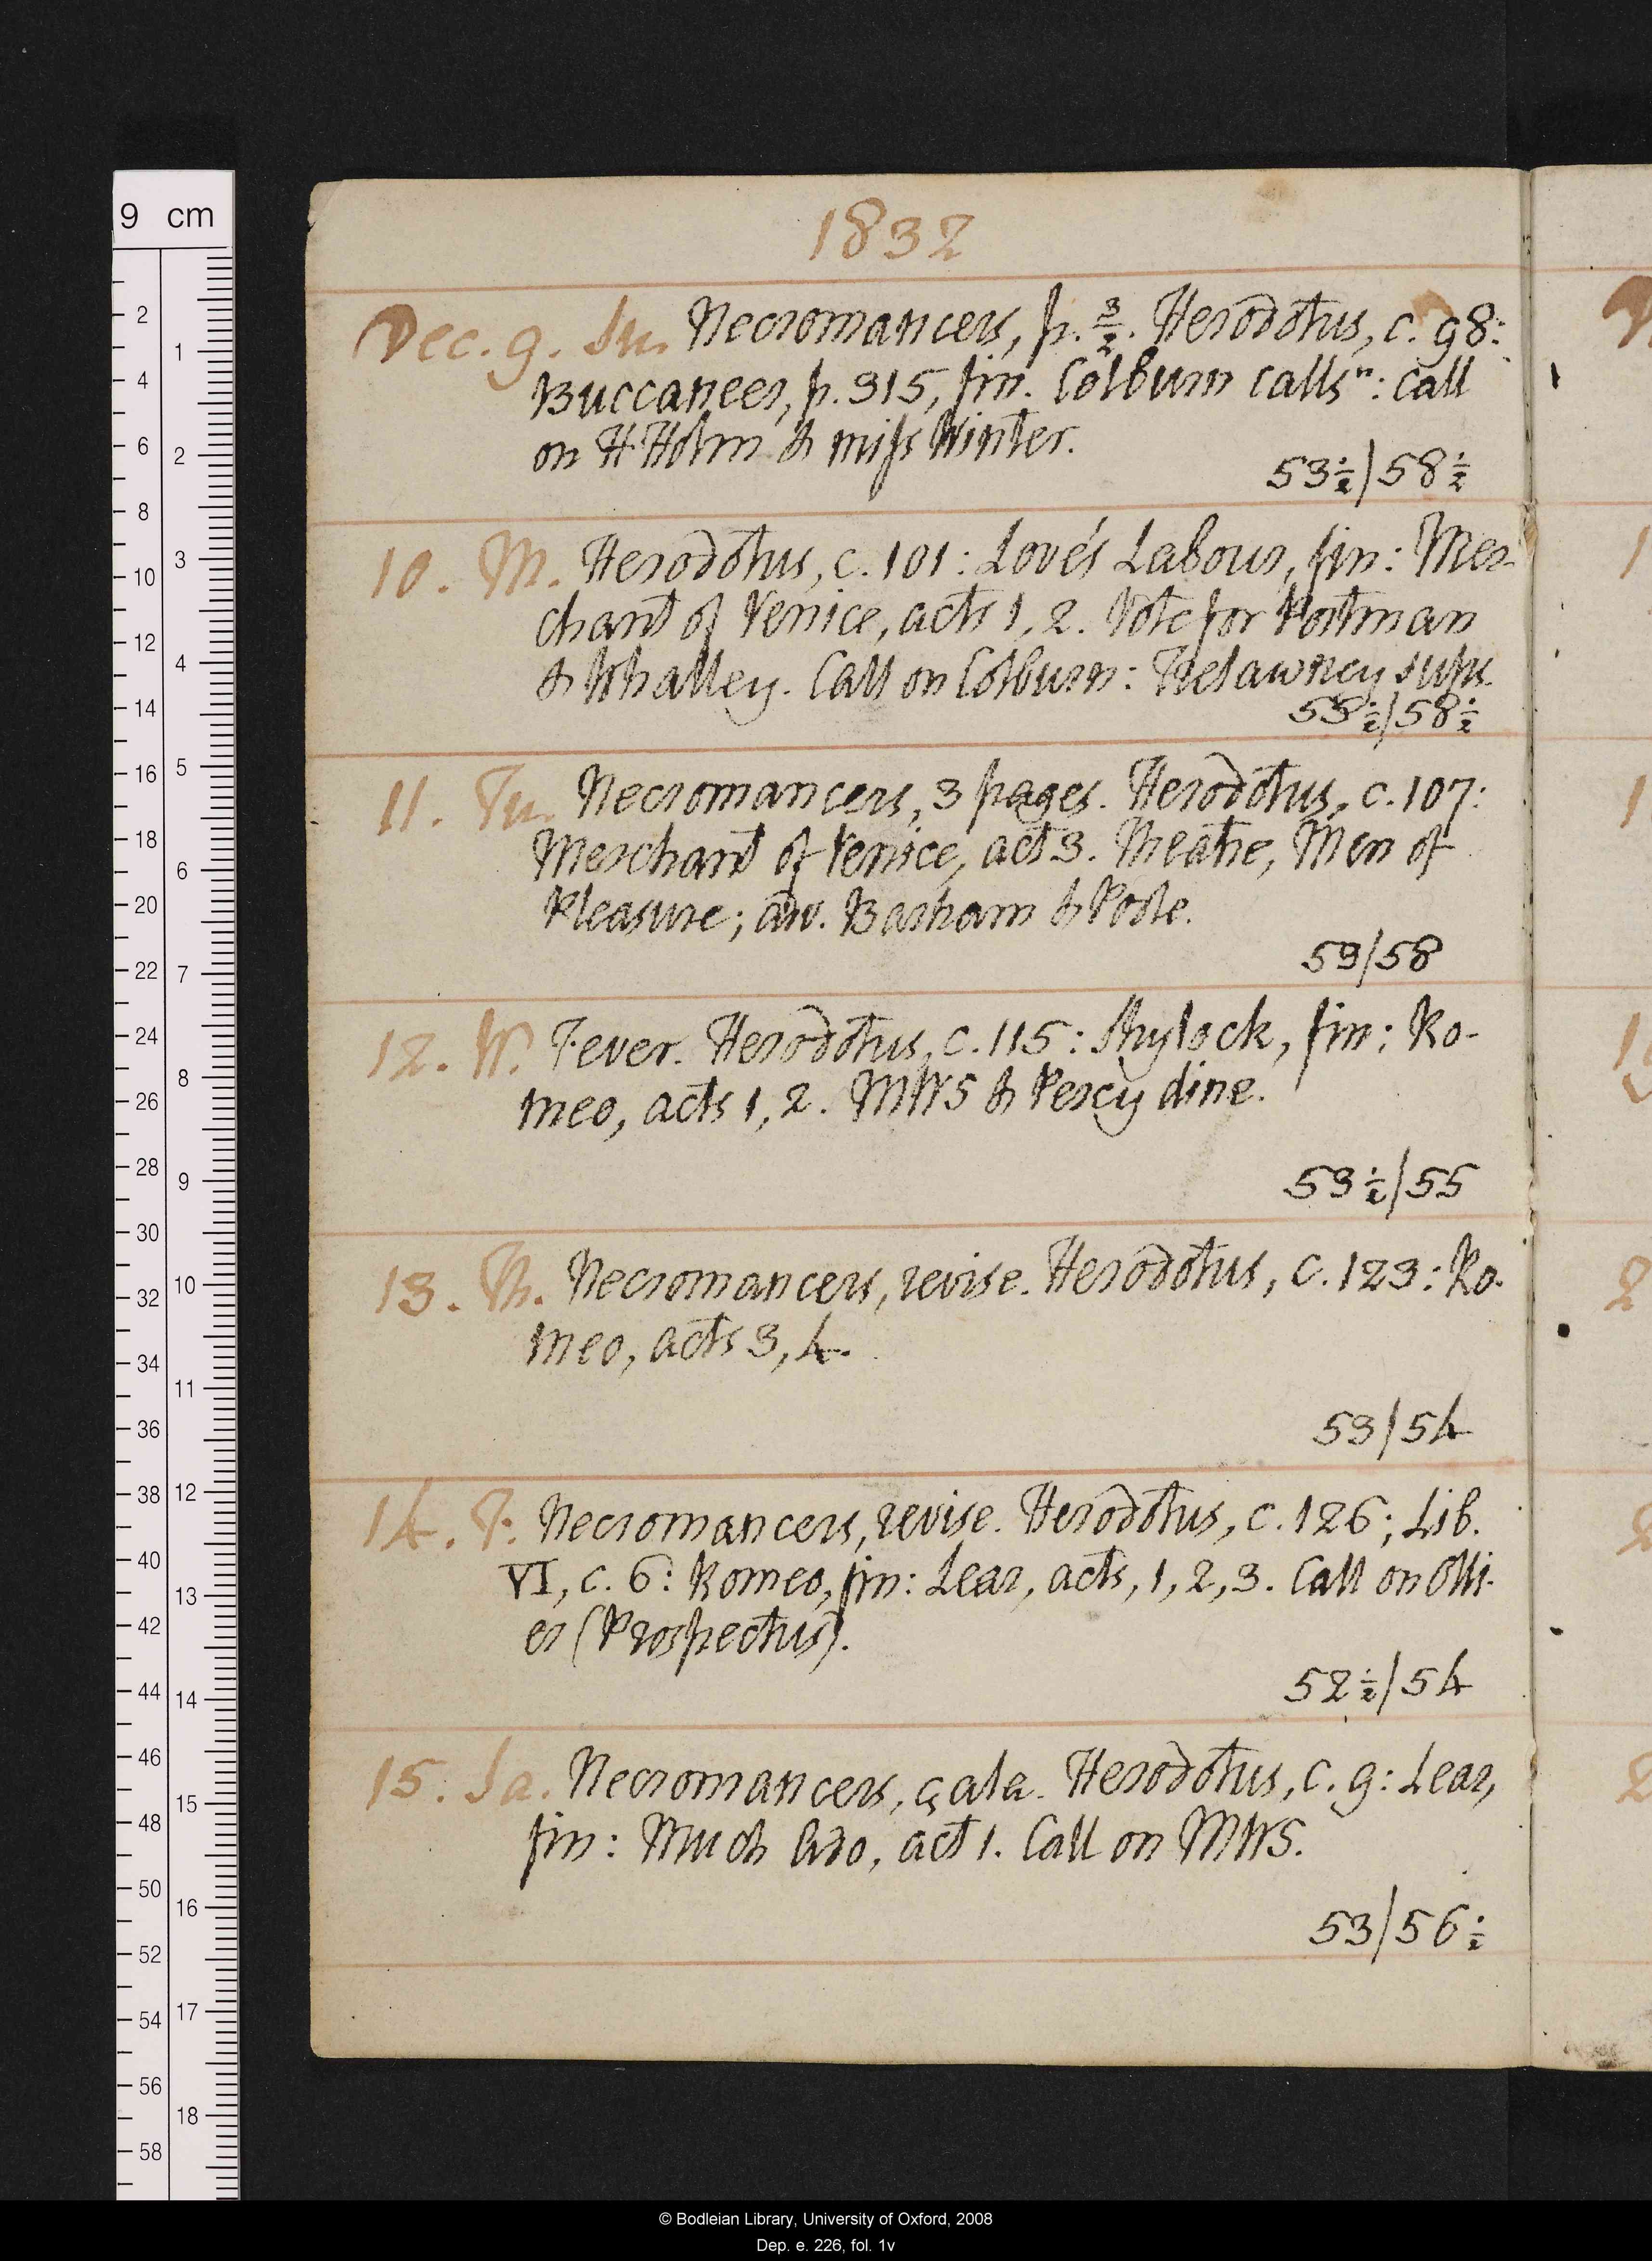 1832
Dec. 9. Su. Necromancers, p. 3/2. Herodotus, c. 98:
Buccaneer, p. 315, fin. Colburn calls n: call
on H Holm & miss Winter.
53½/58½
10. M. Herodotus, c. 101: Love's Labour, fin: Mer-
chant of Venice, acts 1, 2. Vote for Portman
& Whalley. Call on Colburn: Trelawney sups.
53½/58½
11. Tu. Necromancers, 3 pages. Herodotus, c. 107:
Merchant of Venice, act 3. Theatre, Men of
Pleasure; adv. Basham & Poole.
53/58
12. W. Fever. Herodotus, c. 115: Shylock, fin; Ro-
meo, acts 1, 2. MWS & Percy dine.
53½/55
13. Th. Necromancers, revise. Herodotus, c. 123: Ro-
meo, acts 3, 4.
53/54
14. F. Necromancers, revise. Herodotus, c. 126; Lib.
VI, c. 6: Romeo, fin: Lear, acts, 1, 2, 3. Call on Olli-
er (Prospectus).
52½/54
15. Sa. Necromancers, çala. Herodotus, c. 9: Lear,
fin: Much Ado, act 1. Call on MWS.
53/56½
9 cm
2 4 6 8 10 12 14 16 18 20 22 24 26 28 30 32 34 36 38 40 42 44 46 48 50 52 54 56 58
1 2 3 4 5 6 7 8 9 10 11 12 13 14 15 16 17 18
© Bodleian Library, University of Oxford, 2008
Dep. e. 226, fol. 1v